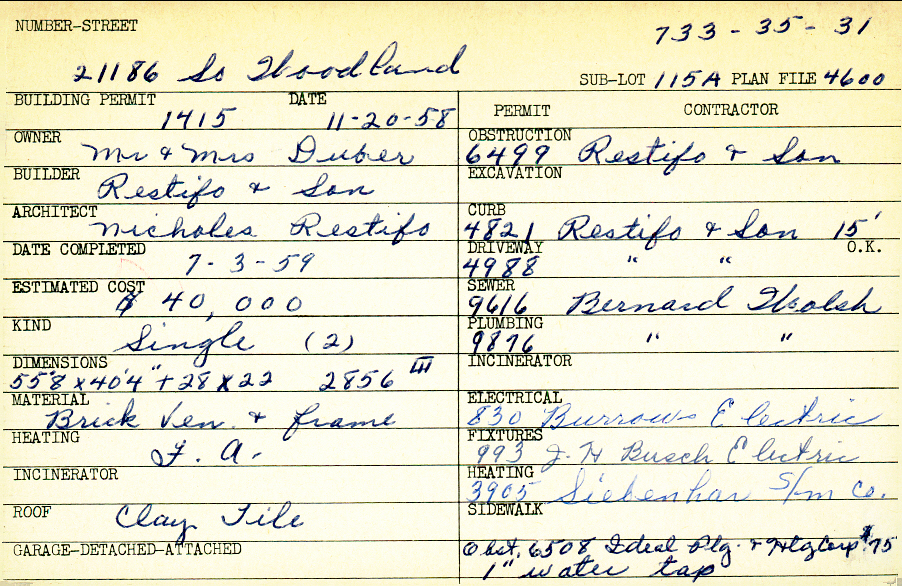 NUMBER-STREET
733-35-31
21186 So Woodland
SUB-LOT 115A PLAN FILE 4600
BUILDING PERMIT DATE
1415 11-20-58
OWNER
Mr & Mrs Duber
BUILDER
Restifo & Son
ARCHITECT
Nicholas Restifo
DATE COMPLETED
7-3-59
ESTIMATED COST
$40,000
KIND
Single (2)
DIMENSIONS
55'8 x 40'4" + 28 x 22 2856 III
MATERIAL
Brick Ven. & frame
HEATING
F. A.
INCINERATOR
ROOF Clay Tile
GARAGE-DETACHED-ATTACHED
PERMIT CONTRACTOR
OBSTRUCTION
6499 Restifo & Son
EXCAVATION
CURB
4821 Restifo & Son 15'
DRIVEWAY O.K.
4988 " "
SEWER
9616 Bernard Walsh
PLUMBING
9876 " "
INCINERATOR
ELECTRICAL
830 Burrows Electric
FIXTURES
993 J. H Busch Electric
HEATING
3905 Siebenhar S/m Co.
SIDEWALK
Obst. 6508 Ideal Plg. & Htg Corp $75
1" water tap